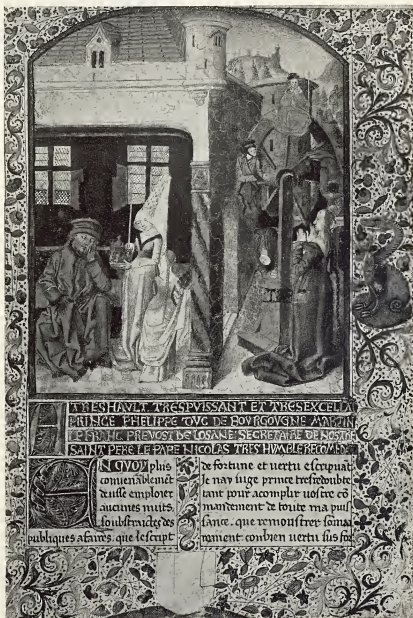 A TRESHAVLT TRESPVISSANT ET TRESEXCELLĀ
PRINCE PHELIPPE DVC DE BOVRGOVGNE MARTIN
LE FRANC PREVOST DE LOSANE SECRETAIRE DE NOSTRE
SAINT PERE LE PAPE NICOLAS TRES HVMBLE RECOMĒDE
EN quoy plus
conuenablemēt
deusse emploier
aucunes nuits
soubstraictes des
publiques afaires que lescript
de fortune et vertu escripuāt
Je nay iuge prince tresredoubte
tant pour acomplir vostre cō
mandement de toute ma puis
sance . que remoustrer sōma
rament combien vertu sus for